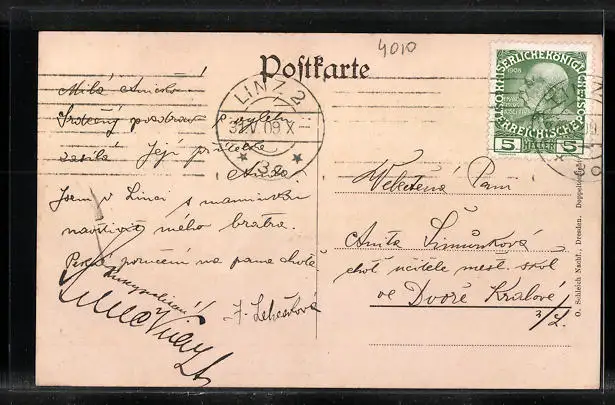 4010
Postkarte
LINZ 2
31.V.09.X-
* 3a *
KAISERLICHEKÖNIGL
1908
ÖSTERREICHISCHE POST
5 HELLER 5
Milá Aničko!
Srdečný pozdrav s výletu
zasílá Její přítelka
Anna.
Jsem v Linci s maminkou
navštívit mého bratra.
Pěkné poručení na pana chotě
J. Lehečková
Velectěná Paní
Anita Šimůnková
choť učitele měst. škol
ve Dvoře Králové
n/L.
O. Schleich Nachf., Dresden. Doppeltönfarben